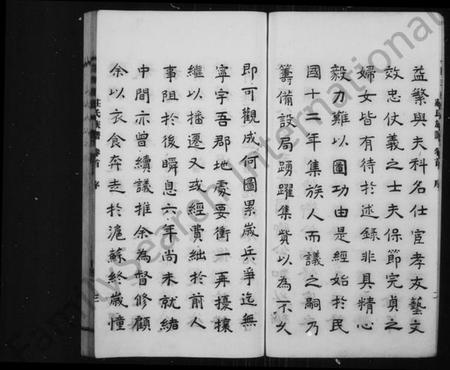 益繁與夫科名仕宦孝友藝文
效忠仗義之士夫保節完貞之
婦女皆有待於述錄非具精心
毅力難以圖功由是經始於民
國十二年集族人而議之嗣乃
籌備設局踴躍集貲以為不久
即可觀成何圖累歲兵爭迄無
寧宇吾郡地處要衝一再擾攘
繼以播遷又或經費絀於前人
事阻於後瞬息六年尚未就緒
中間亦曾續議推余為督修顧
余以衣食奔走於滬蘇終歲憧
氏族譜 卷首 序
FamilySearch International